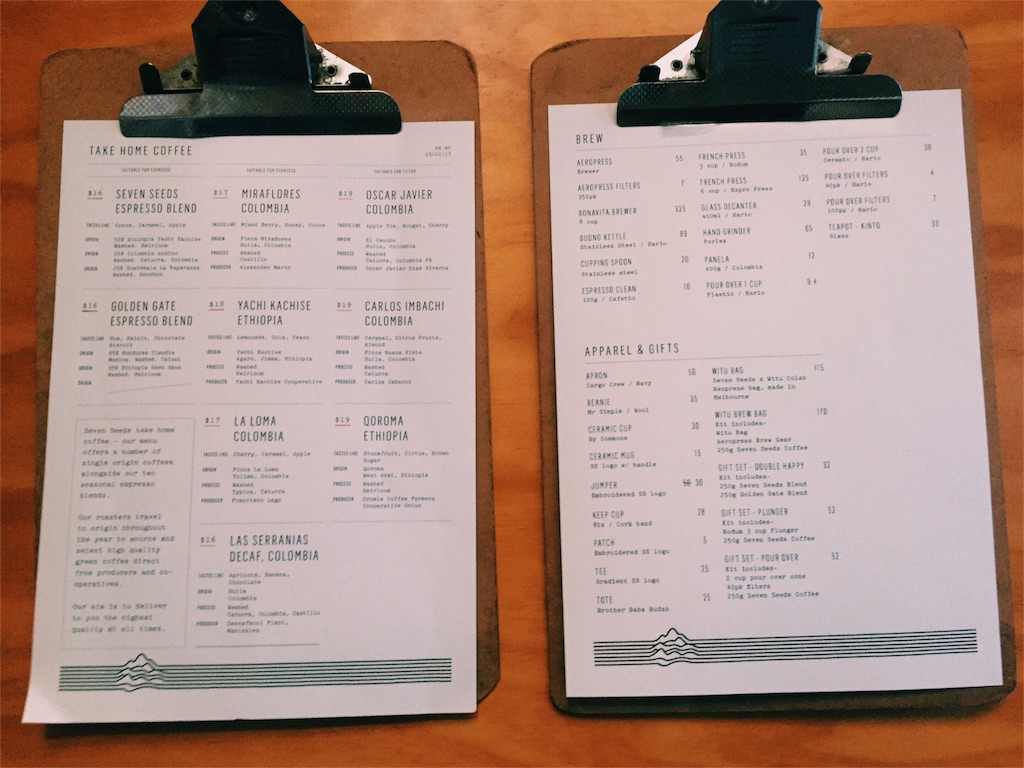 TAKE HOME COFFEE
SUITABLE FOR ESPRESSO
SUITABLE FOR ESPRESSO
SUITABLE FOR FILTER
$16 SEVEN SEEDS
ESPRESSO BLEND
TASTES LIKE Cocoa, Caramel, Apple
ORIGIN 50% Ethiopia Yachi Kachise
Washed. Heirloom
25% Colombia Andino
Washed. Caturra, Colombia
25% Guatemala La Esperanza
Washed. Bourbon
$17 MIRAFLORES
COLOMBIA
TASTES LIKE Mixed Berry, Honey, Cocoa
ORIGIN Finca Miradores
Huila, Colombia
PROCESS Washed
Castillo
PRODUCER Alexander Marin
$19 OSCAR JAVIER
COLOMBIA
TASTES LIKE Apple Pie, Nougat, Cherry
ORIGIN El Caucho
Huila, Colombia
PROCESS Washed
Caturra, Colombia F6
PRODUCER Oscar Javier Dias Viveros
$16 GOLDEN GATE
ESPRESSO BLEND
TASTES LIKE Rum, Raisin, Chocolate
Biscuit
ORIGIN 65% Honduras Claudia
Medina. Washed. Catuai
ORIGIN 35% Ethiopia Haro Haca
Washed. Heirloom
ORIGIN
$18 YACHI KACHISE
ETHIOPIA
TASTES LIKE Lemonade, Cola, Peach
ORIGIN Yachi Kachise
Agaro, Jimma, Ethiopia
PROCESS Washed
Heirloom
PRODUCER Yachi Kachise Cooperative
$19 CARLOS IMBACHI
COLOMBIA
TASTES LIKE Caramel, Citrus Fruits,
Almond
ORIGIN Finca Buena Vista
Huila, Colombia
PROCESS Washed
Caturra
PRODUCER Carlos Imbachi
$17 LA LOMA
COLOMBIA
TASTES LIKE Cherry, Caramel, Apple
ORIGIN Finca La Loma
Tolima, Colombia
PROCESS Washed
Typica, Caturra
PRODUCER Francisco Lago
$19 QOROMA
ETHIOPIA
TASTES LIKE Stonefruit, Citrus, Brown
Sugar
ORIGIN Qoroma
West Arsi, Ethiopia
PROCESS Washed
Heirloom
PRODUCER Oromia Coffee Farmers
Cooperative Union
Seven Seeds take home
coffee - our menu
offers a number of
single origin coffees
alongside our two
seasonal espresso
blends.
Our roasters travel
to origin throughout
the year to source and
select high quality
green coffee direct
from producers and co-
operatives.
Our aim is to deliver
to you the highest
quality at all times.
$16 LAS SERRANIAS
DECAF, COLOMBIA
TASTES LIKE Apricots, Banana,
Chocolate
ORIGIN Huila
Colombia
PROCESS Washed
Caturra, Colombia, Castillo
PRODUCER Descafecol Plant,
Manizales
BREW
AEROPRESS 55
Brewer
AEROPRESS FILTERS 7
350pk
BONAVITA BREWER 325
8 cup
BUONO KETTLE 89
Stainless Steel / Hario
CUPPING SPOON 20
Stainless steel
ESPRESSO CLEAN 10
100g / Cafetto
FRENCH PRESS 35
3 cup / Bodum
FRENCH PRESS 125
6 cup / Espro Press
GLASS DECANTER 29
600ml / Hario
HAND GRINDER 65
Porlex
PANELA 12
400g / Colombia
POUR OVER 1 CUP 9.4
Plastic / Hario
POUR OVER 2 CUP 30
Ceramic / Hario
POUR OVER FILTERS 4
40pk / Hario
POUR OVER FILTERS 7
100pk / Hario
TEAPOT - KINTO 33
Glass
APPAREL & GIFTS
APRON 50
Cargo Crew / Navy
BEANIE 35
Mr Simple / Wool
CERAMIC CUP 30
By Commons
CERAMIC MUG 15
SS logo w/ handle
JUMPER 30
Embroidered SS logo
KEEP CUP 28
8oz / Cork band
PATCH 5
Embroidered SS logo
TEE 25
Gradient SS logo
TOTE 25
Brother Baba Budan
WITU BAG 115
Seven Seeds x Witu Colab
Neoprene bag, made in
Melbourne
WITU BREW BAG 170
Kit includes-
Witu Bag
Aeropress Brew Gear
250g Seven Seeds Coffee
GIFT SET - DOUBLE HAPPY 32
Kit includes-
250g Seven Seeds Blend
250g Golden Gate Blend
GIFT SET - PLUNGER 52
Kit includes-
Bodum 3 cup Plunger
250g Seven Seeds Coffee
GIFT SET - POUR OVER 52
Kit includes-
2 cup pour over cone
40pk filters
250g Seven Seeds Coffee